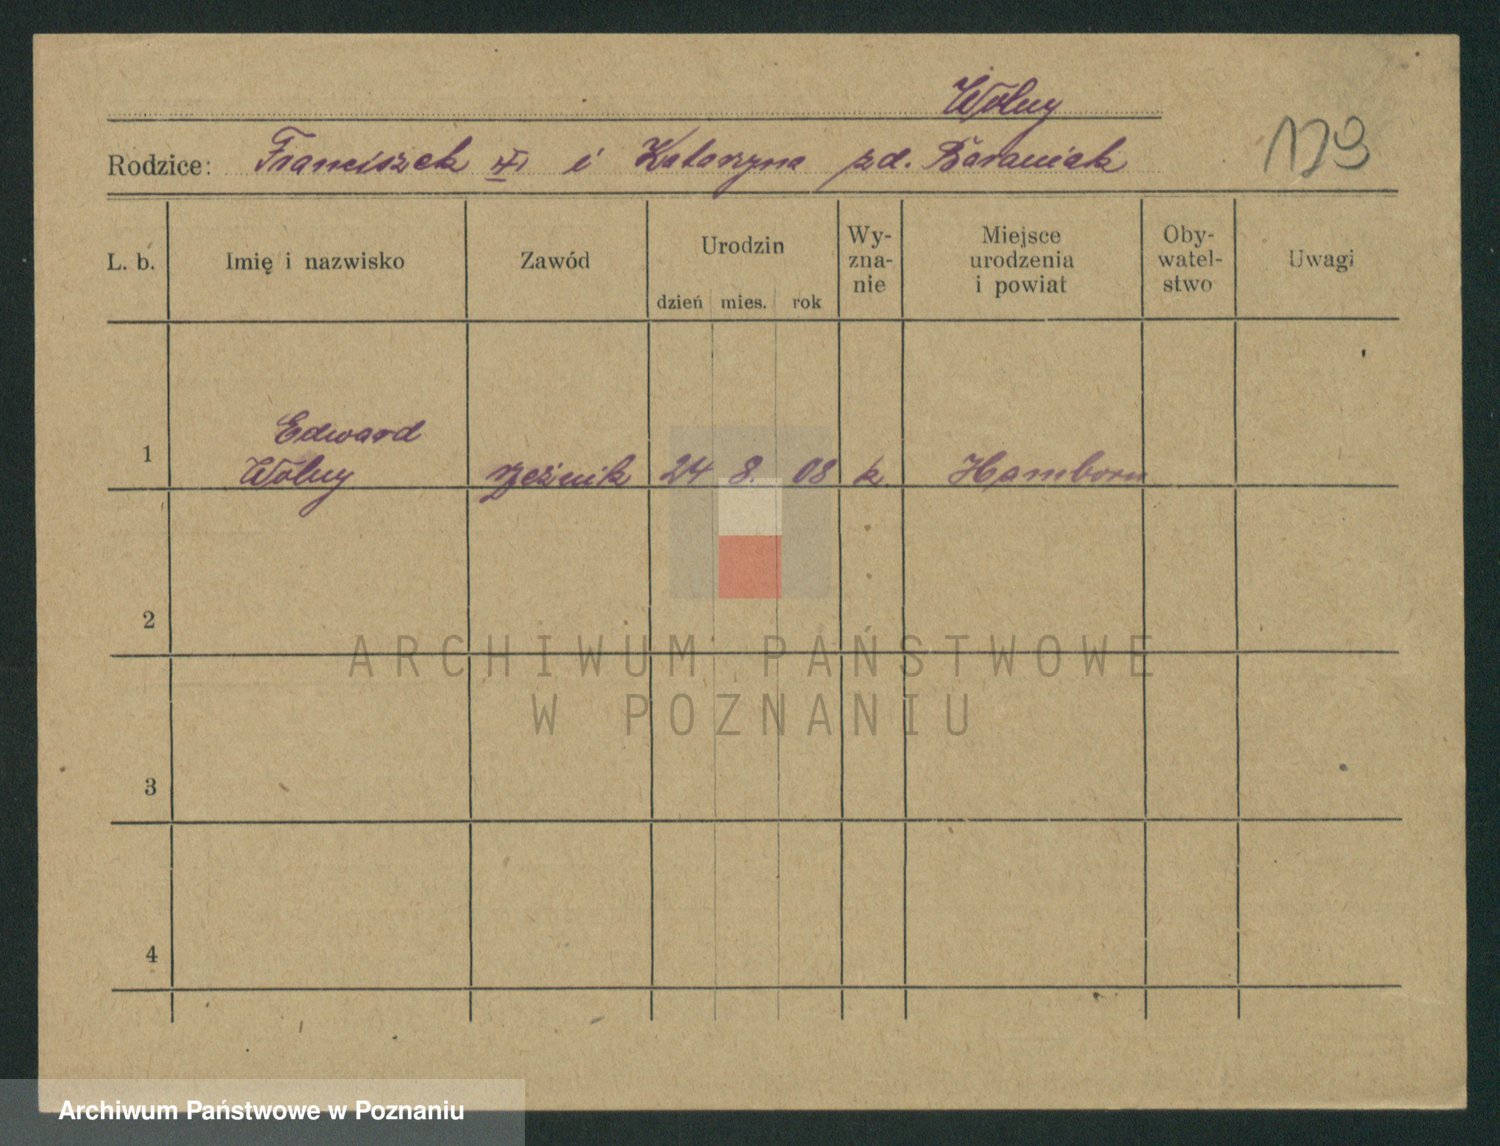 Wolny
Rodzice: Franciszek VI i Katarzyna zd. Baraniak
179
L. b. Imię i nazwisko Zawód Urodzin dzień mies. rok Wy-zna-nie Miejsce urodzenia i powiat Oby-watel-stwo Uwagi
Edward
1 Wolny rzeźnik 24 8. 08 k. Hamborn
2
ARCHIWUM PAŃSTWOWE
W POZNANIU
3
4
Archiwum Państwowe w Poznaniu